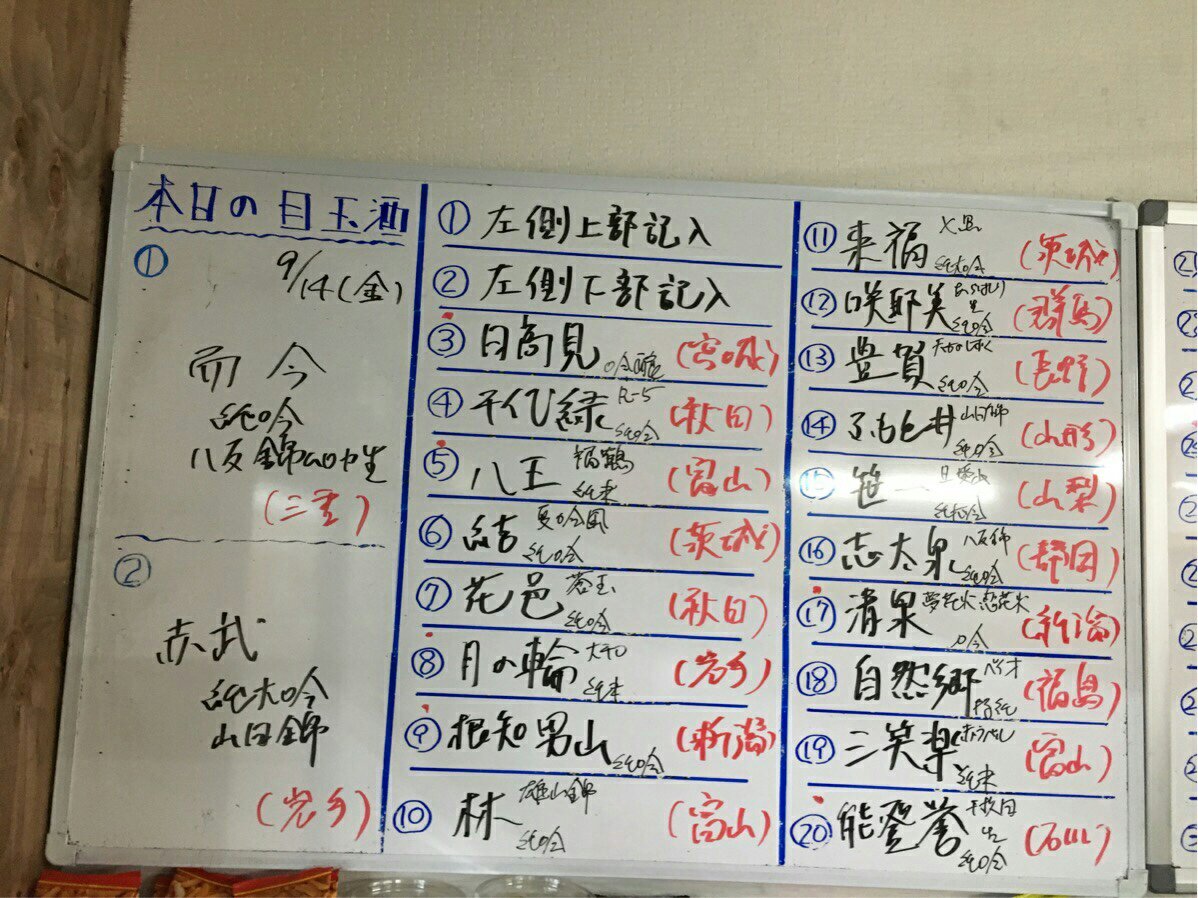 本日の目玉酒
①
9/14(金)
而今
純吟
八反錦 生
(三重)
②
赤武
純大吟
山田錦
(岩手)
① 左側上部記入
② 左側下部記入
③ 日高見 (宮城)
④ 千代緑 R-5 純吟 (秋田)
⑤ 八王 福鶴 純米 (富山)
⑥ 結 夏吟風 純吟 (茨城)
⑦ 花邑 蒼玉 純吟 (秋田)
⑧ 月の輪 純米 (岩手)
⑨ 根知男山 純吟 (新潟)
⑩ 林 雄山錦 純吟 (富山)
⑪ 来福 純大吟 (茨城)
⑫ 咲耶美 生 純吟 (群馬)
⑬ 豊賀 純吟 (長野)
⑭ ふもと井 山田錦 純吟 (山形)
⑮ 笹一 (山梨)
⑯ 志太泉 八反錦 純吟 (静岡)
⑰ 清泉 吟 (新潟)
⑱ 自然郷 (福島)
⑲ 三笑楽 純米 (富山)
⑳ 能登誉 生 純吟 (石川)